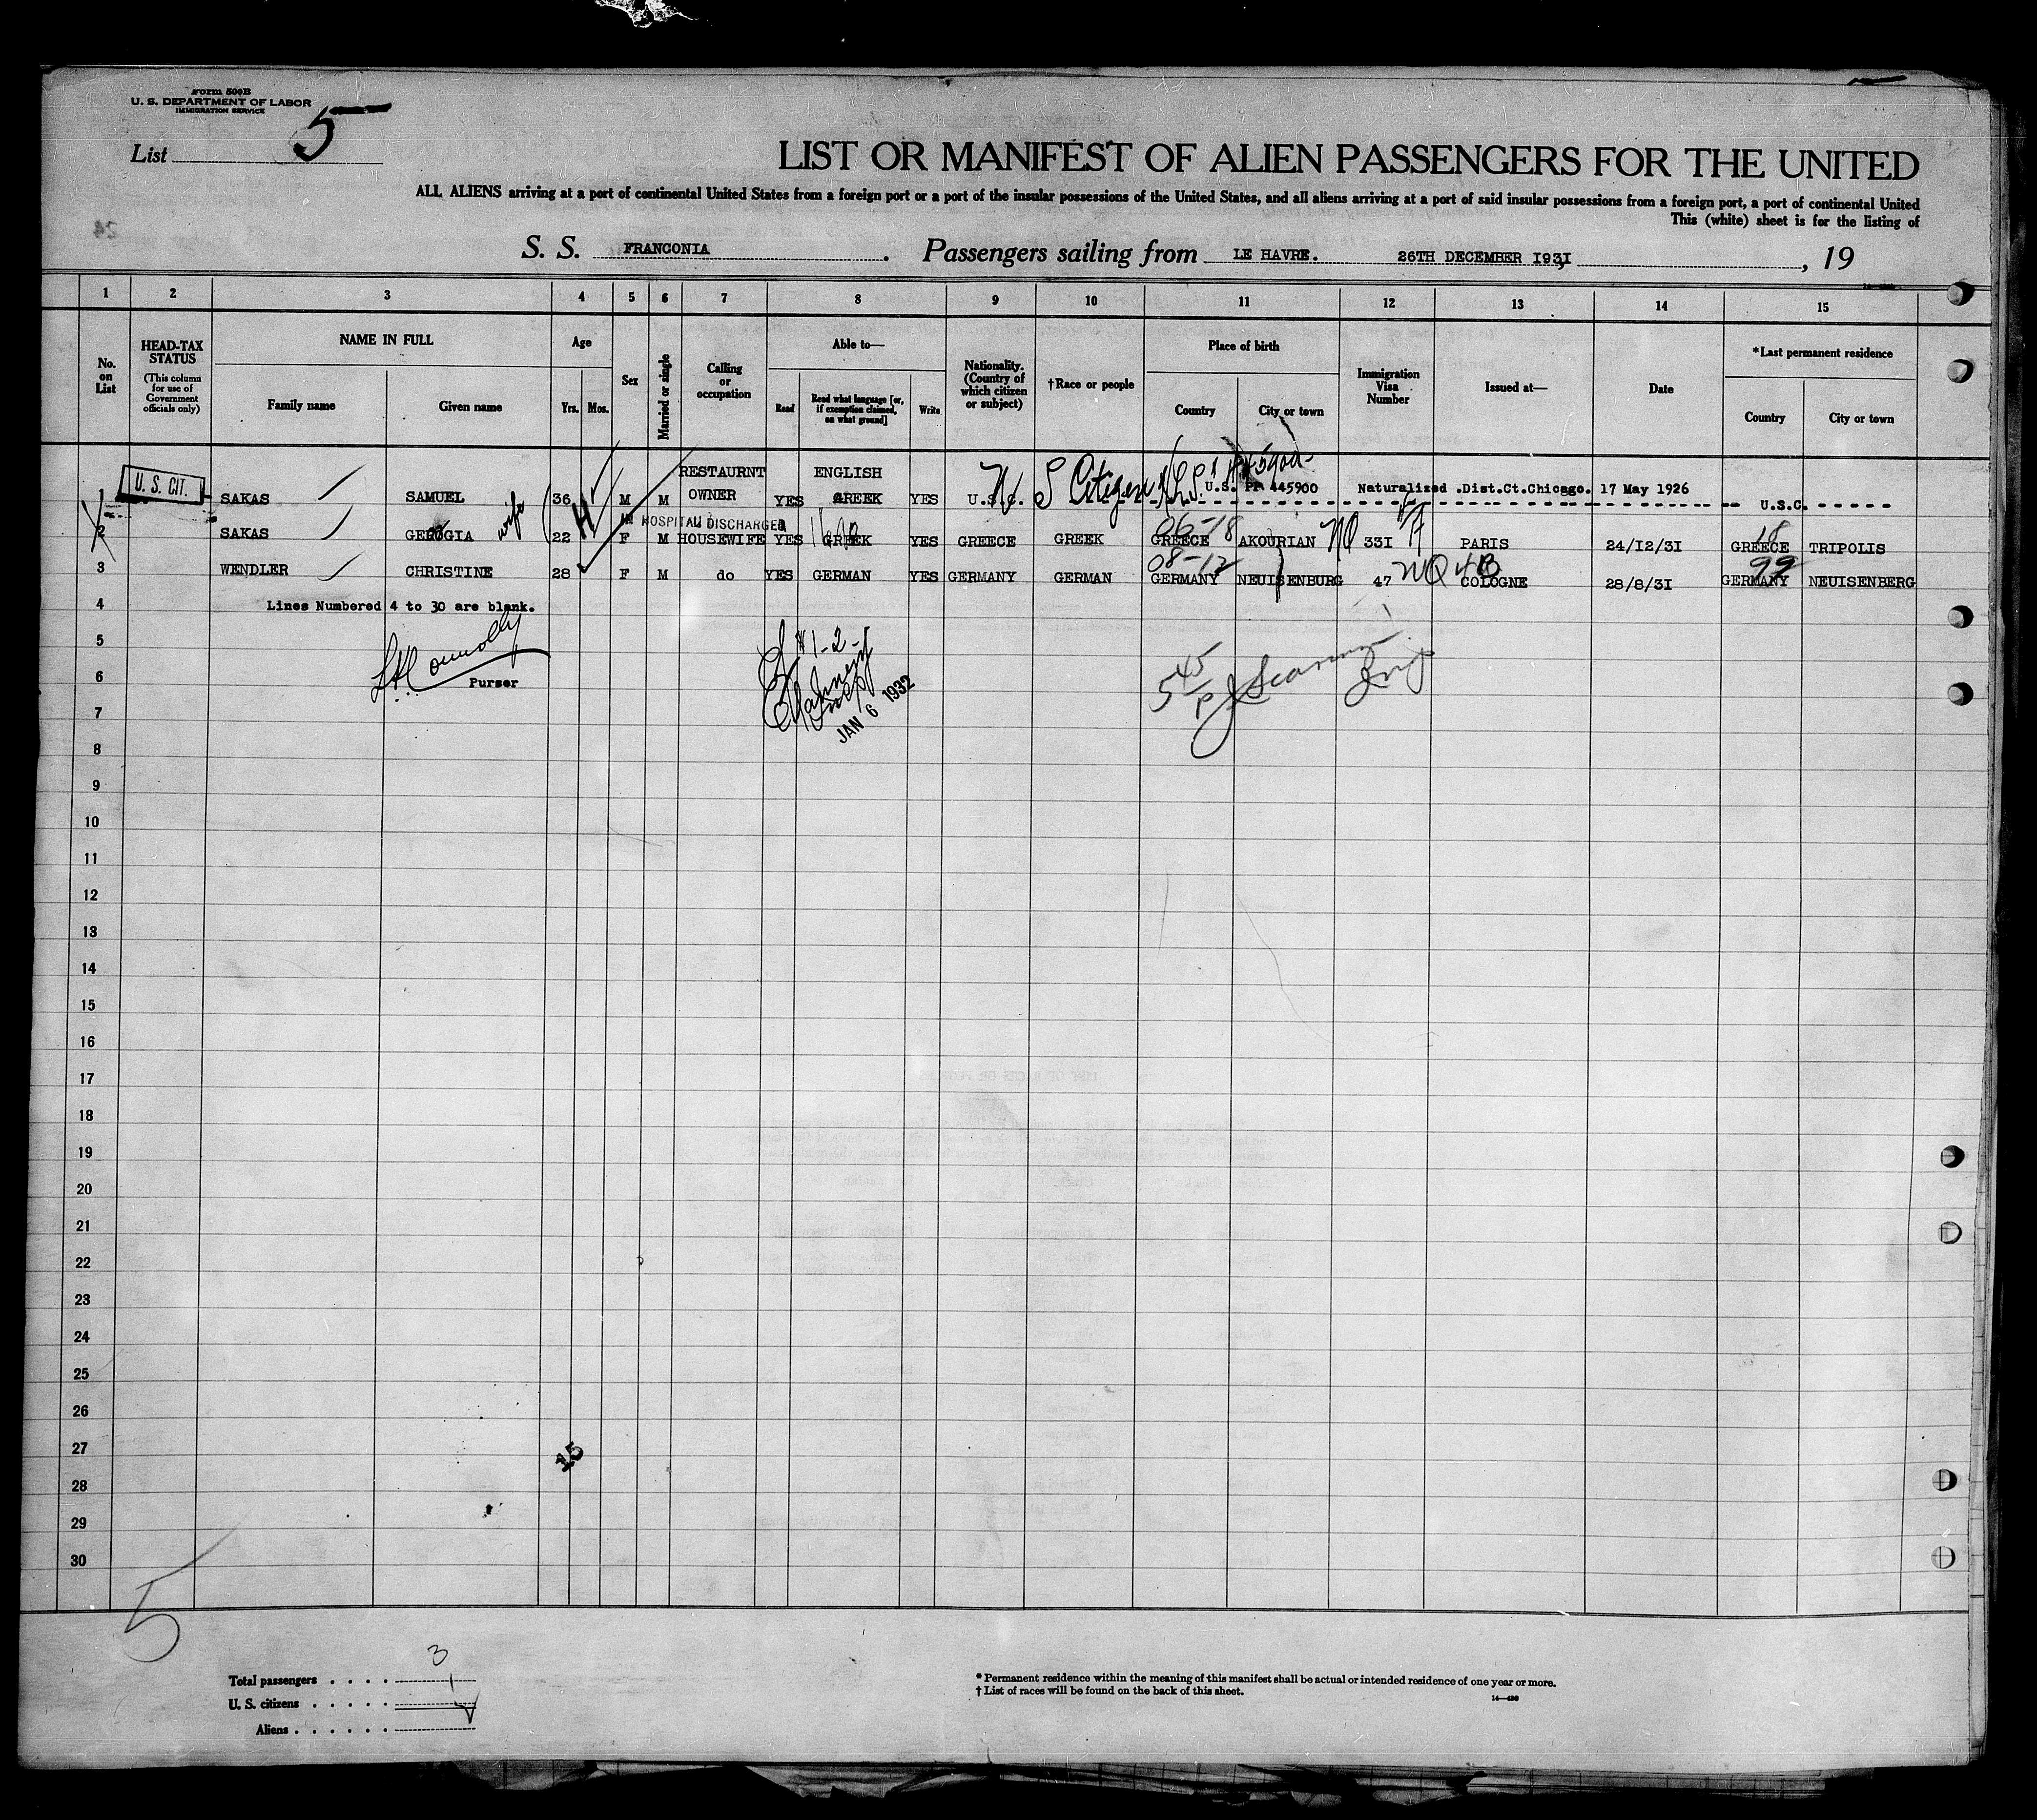 Form 500B
U. S. DEPARTMENT OF LABOR
IMMIGRATION SERVICE
List 5
LIST OR MANIFEST OF ALIEN PASSENGERS FOR THE UNITED
ALL ALIENS arriving at a port of continental United States from a foreign port or a port of the insular possessions of the United States, and all aliens arriving at a port of said insular possessions from a foreign port, a port of continental United
This (white) sheet is for the listing of
S. S. FRANCONIA. Passengers sailing from LE HAVRE. 26TH DECEMBER 1931, 19
1 2 3 4 5 6 7 8 9 10 11 12 13 14 15
No. on List
HEAD-TAX STATUS
(This column for use of Government officials only)
NAME IN FULL
Family name Given name
Age
Yrs. Mos.
Sex
Married or single
Calling or occupation
Able to—
Read
Read what language [or, if exemption claimed, on what ground]
Write
Nationality. (Country of which citizen or subject)
†Race or people
Place of birth
Country City or town
Immigration Visa Number
Issued at—
Date
*Last permanent residence
Country City or town
1 U. S. CIT. SAKAS SAMUEL 36 M M RESTAURNT OWNER YES ENGLISH GREEK YES U.S.C. S Citizen U.S. PP 445900 Naturalized .Dist.Ct.Chicago. 17 May 1926 U.S.C.
IN HOSPITAL DISCHARGED
2 SAKAS GEROGIA wife 22 F M HOUSEWIFE YES GREEK YES GREECE GREEK 06-18 GREECE AKOURIAN NQ 331 PARIS 24/12/31 18 GREECE TRIPOLIS
3 WENDLER CHRISTINE 28 F M do YES GERMAN YES GERMANY GERMAN 08-12 GERMANY NEUISENBURG 47 NQ 4B COLOGNE 28/8/31 99 GERMANY NEUISENBERG
4 Lines Numbered 4 to 30 are blank.
5
6 Purser
#1-2-
JAN 6 1932
5 45
7
8
9
10
11
12
13
14
15
16
17
18
19
20
21
22
23
24
25
26
27
15
28
29
30
5
Total passengers 3
U. S. citizens 1
Aliens
* Permanent residence within the meaning of this manifest shall be actual or intended residence of one year or more.
† List of races will be found on the back of this sheet.
14—430